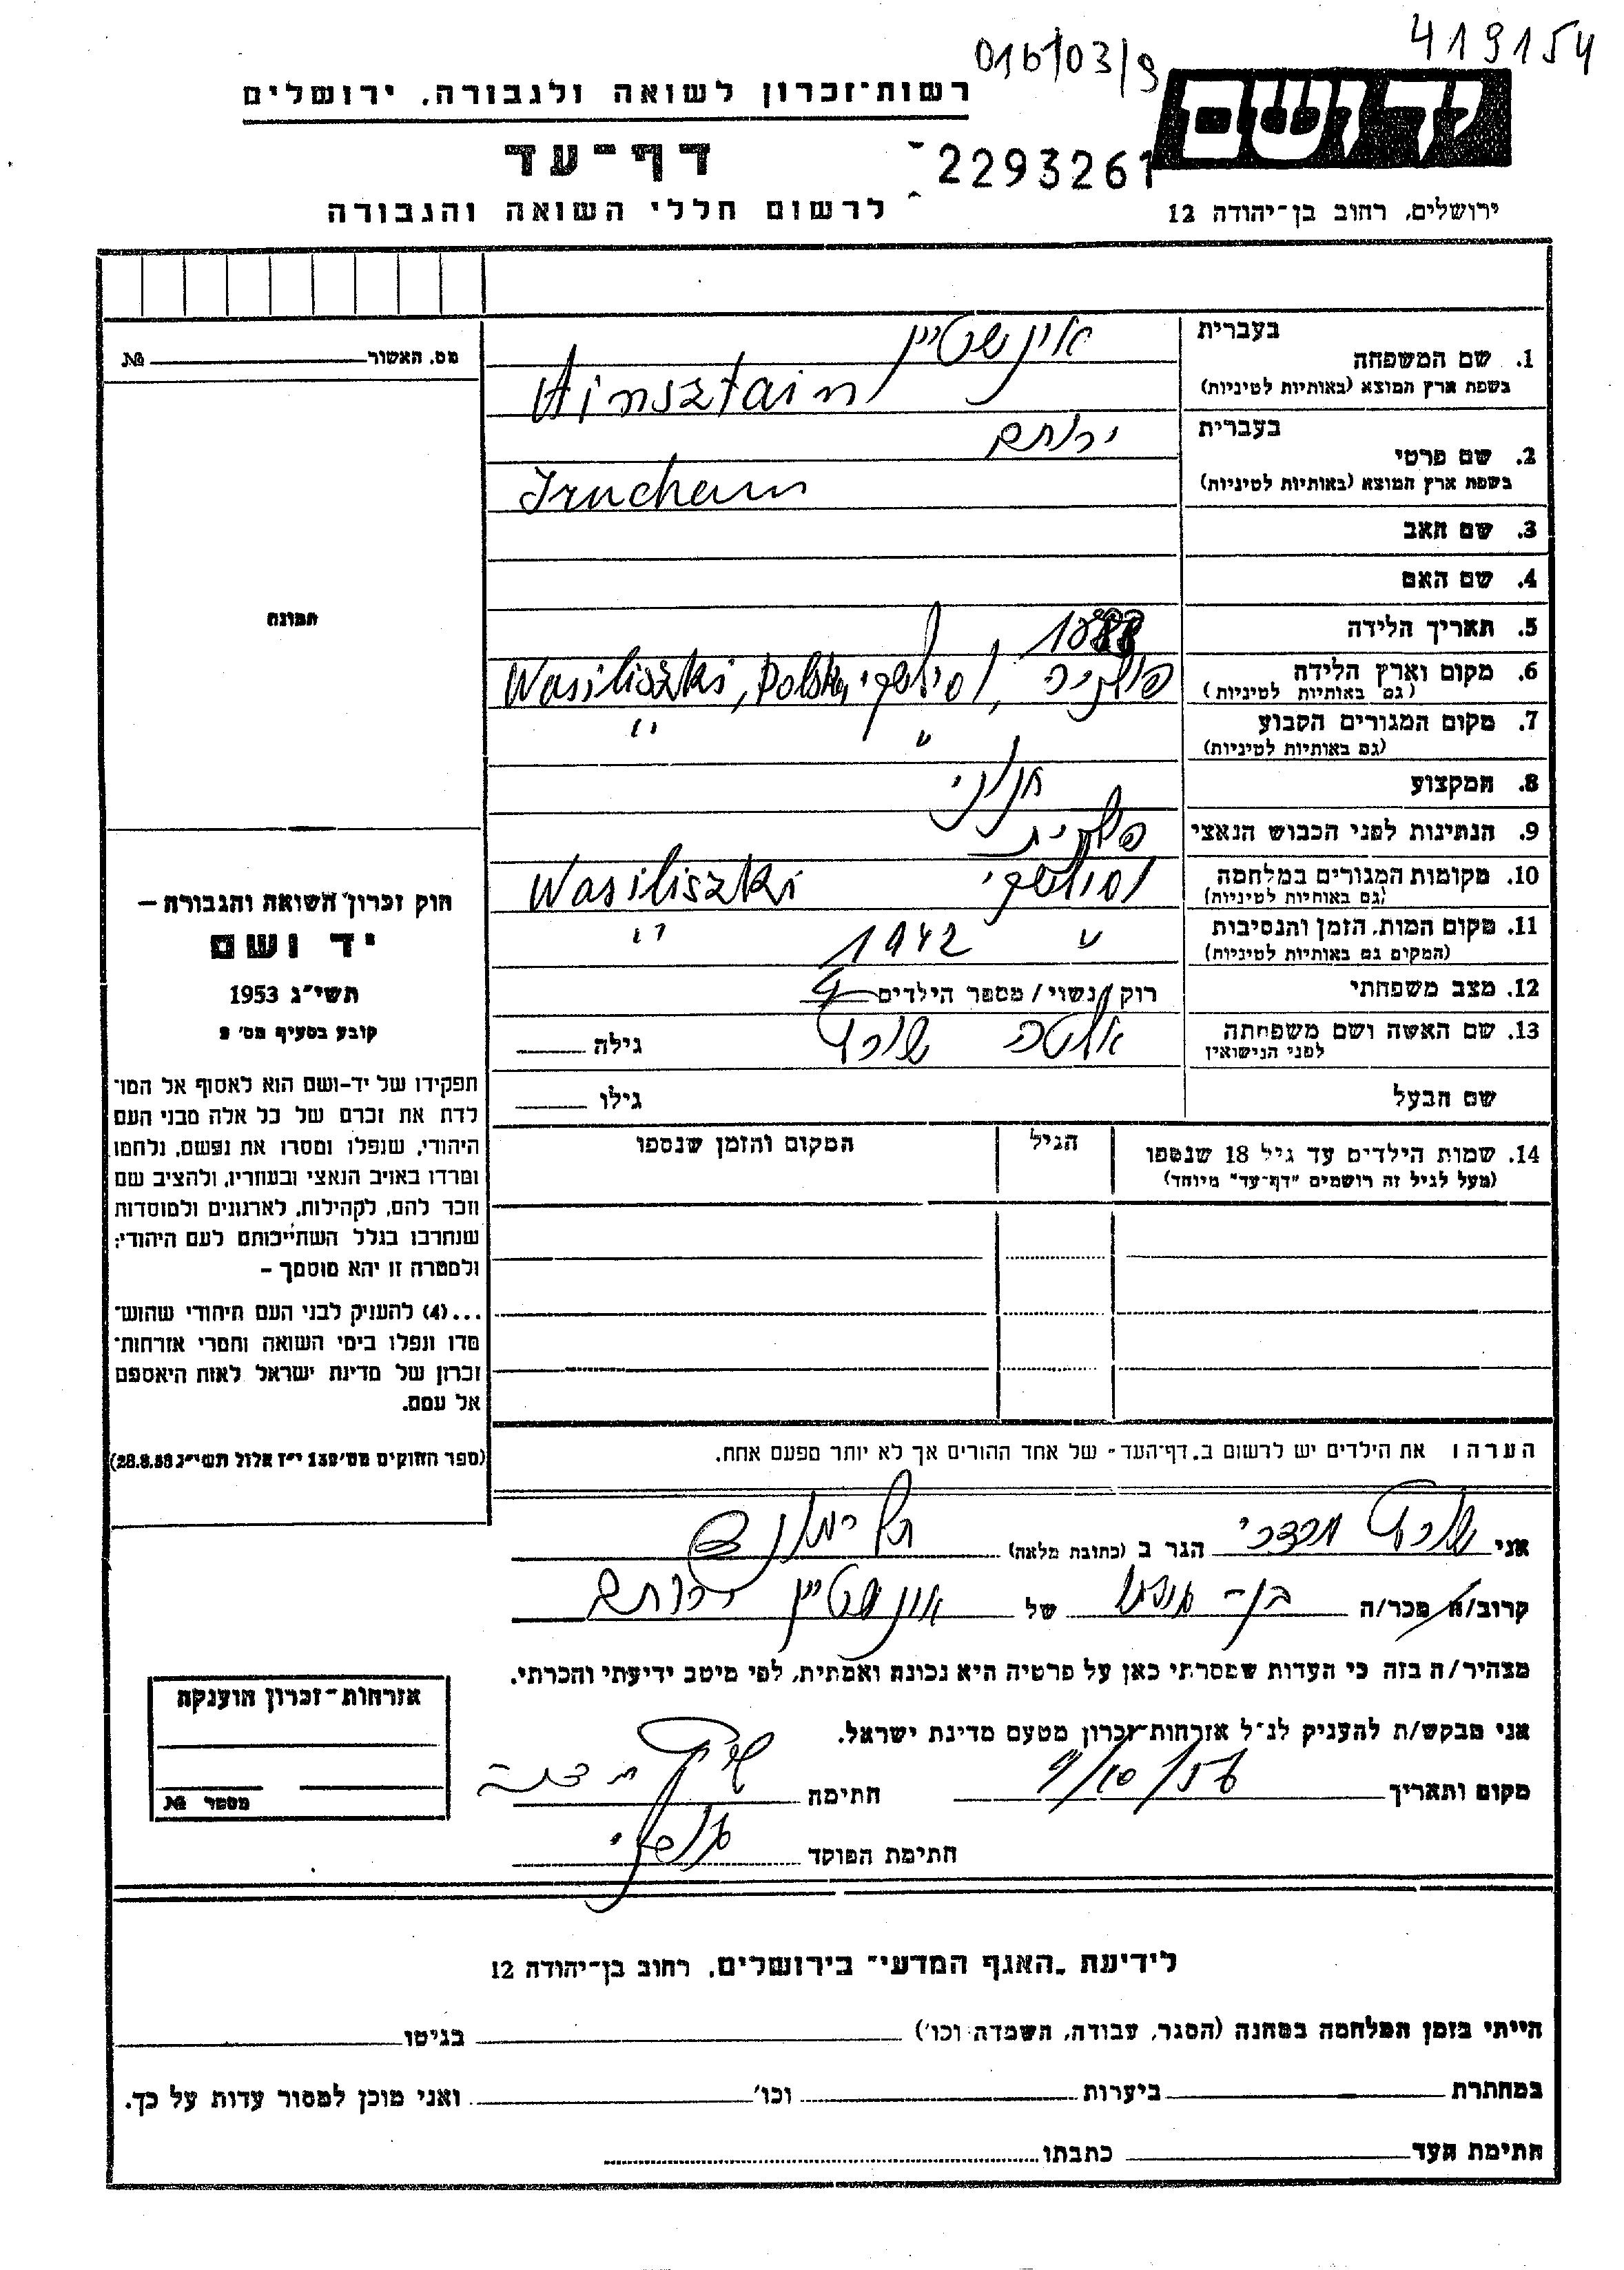 419154
016/03/9
יד ושם
רשות־זכרון לשואה ולגבורה, ירושלים
דף־עד
2293261
לרשום חללי השואה והגבורה
ירושלים, רחוב בן־יהודה 12
בעברית
אינשטיין
1. שם המשפחה
בשפת ארץ המוצא (באותיות לטיניות)
Ainsztain
בעברית
ירוחם
2. שם פרטי
בשפת ארץ המוצא (באותיות לטיניות)
Iruchem
3. שם האב
4. שם האם
5. תאריך הלידה
6. מקום וארץ הלידה
(גם באותיות לטיניות)
פולניה, וסילישקי Wasiliszki, Polska
7. מקום המגורים הקבוע
(גם באותיות לטיניות)
" "
8. המקצוע
חנוני
9. הנתינות לפני הכבוש הנאצי
פולנית
10. מקומות המגורים במלחמה
(גם באותיות לטיניות)
וסילישקי Wasiliszki
11. מקום המות, הזמן והנסיבות
(המקום גם באותיות לטיניות)
" 1942 "
12. מצב משפחתי
רוק/נשוי/ מספר הילדים 4
13. שם האשה ושם משפחתה
לפני הנישואין
גילה
שם הבעל
גילו
14. שמות הילדים עד גיל 18 שנספו
(מעל לגיל זה רושמים "דף־עד" מיוחד)
הגיל
המקום והזמן שנספו
הערה: את הילדים יש לרשום ב„דף־העד" של אחד ההורים אך לא יותר מפעם אחת.
אני מרדכי הגר ב (כתובת מלאה)
קרוב/ה מכר/ה בן־ של אינשטיין ירוחם
מצהיר/ה בזה כי העדות שמסרתי כאן על פרטיה היא נכונה ואמתית, לפי מיטב ידיעתי והכרתי.
אני מבקש/ת להעניק לנ"ל אזרחות־זכרון מטעם מדינת ישראל.
מקום ותאריך 9/10/56 חתימה
חתימת הפוקד
מס. האשור №
תמונה
חוק זכרון השואה והגבורה —
יד ושם
תשי"ג 1953
קובע בסעיף מס׳ 2
תפקידו של יד-ושם הוא לאסוף אל המו־
לדת את זכרם של כל אלה מבני העם
היהודי, שנפלו ומסרו את נפשם, נלחמו
ומרדו באויב הנאצי ובעוזריו, ולהציב שם
וזכר להם, לקהילות, לארגונים ולמוסדות
שנחרבו בגלל השתייכותם לעם היהודי;
ולמטרה זו יהא מוסמך –
...(4) להעניק לבני העם היהודי שהוש־
מדו ונפלו בימי השואה והמרי אזרחות־
זכרון של מדינת ישראל לאות היאספם
אל עמם.
(ספר החוקים מס׳ 132 י"ז אלול תשי"ג 28.8.53)
אזרחות־זכרון הוענקה
מספר №
לידיעת „האגף המדעי" בירושלים, רחוב בן־יהודה 12
הייתי בזמן המלחמה במחנה (הסגר, עבודה, השמדה וכו׳) בגיטו
במחתרת ביערות וכו׳ ואני מוכן למסור עדות על כך.
חתימת העד כתבתו